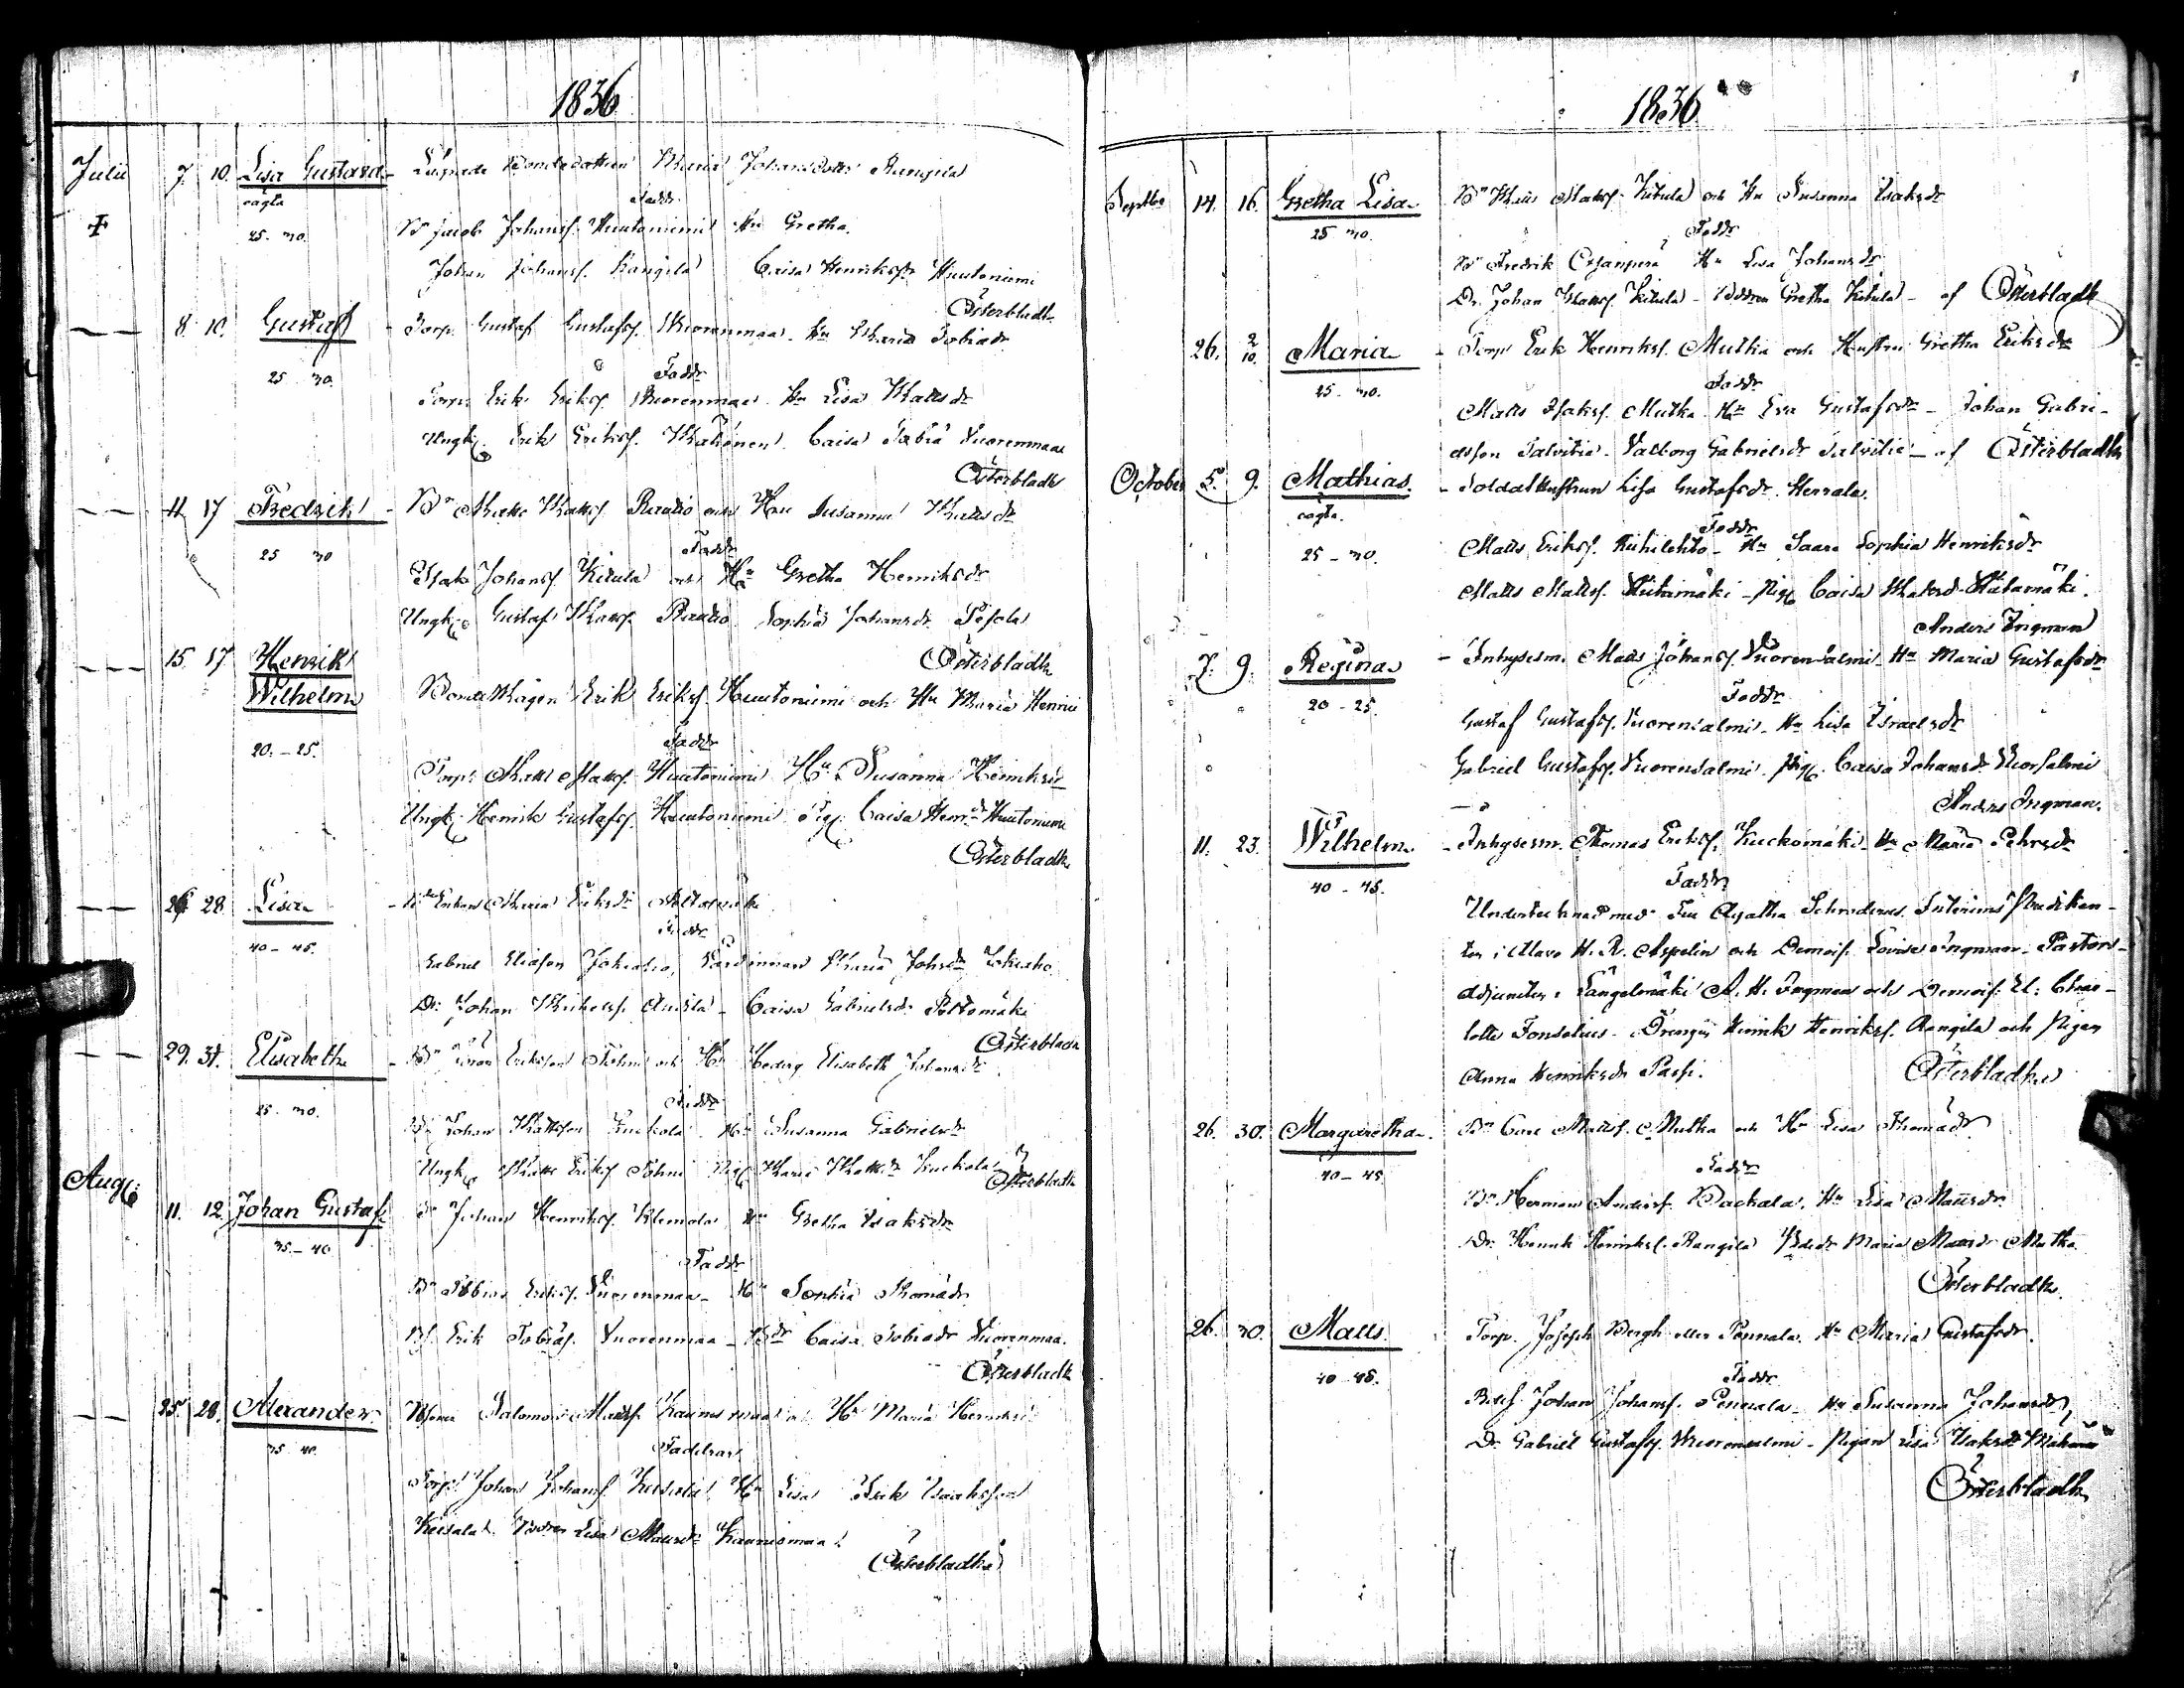 1836
Julii 7. 10. Lisa Gustava - Maria Johansdotter Rangila
oägta Fadd:
25-30. Bn Jacob Johansf. Huutoniemi Hu Gretha.
Johan Johansf. Rangila Caisa Henriksdr Huutoniemi
Österbladh
8. 10. Gustaf - Torp. Gustaf Gustafsf. Vuorenmaa. Hu Maria Tobiadr
25-30. Faddr
Torp. Erik Eriksf. Vuorenmaa Hu Lisa Mattsdr
Ungk. Erik Eriksf. Caisa Tobia Vuorenmaa
Österbladh
11. 17 Fredrik - Bn Matts Mattsf. Rautio och Hu Susanna Mattsdr
25 30 Faddr
Isak Johansf. Kitula och Hu Gretha Henriksdr
Ungk. Gustaf Mattsf. Rautio Sophia Johansdr
Österbladh
15. 17 Henrik
Wilhelm Erik Eriksf. Huutoniemi och Hu Maria Henrici
20.-25. Faddr
Torp. Matts Mattsf. Huutoniemi Hu Susanna Henriksdr
Ungk. Henrik Gustafsf. Huutoniemi Pig. Caisa Henr.dr Huutoniemi
Österbladh
26 28 Lisa - Enkan Maria Eriksdr
40-45. Faddr
Gabriel Eliasson Jokiaho, Maria Johsdr Jokiaho
Dr. Johan Caisa Gabrielsdr
Österbladh
29. 31. Elisabeth - Bn Eriksson och Hu Hedvig Elisabeth Johansdr
25-30. Faddr
Bn Johan Mattsson Kuckola Hu Susanna Gabrielsdr
Ungk. Matts Eriksf. Pig. Maria Mattsdr Kuckola
Österbladh
Aug: 11. 12. Johan Gustaf Johan Henriksf. Klemola Hu Gretha Isaksdr
35-40 Faddr
Bn Tobias Eriksf. Vuorenmaa - Hu Sophia Thomädr
Bf. Erik Tobiäs. Vuorenmaa - Bdr Caisa Tobiadr Vuorenmaa.
Österbladh
25. 28. Alexander. Salomon Mattsf. Kaunismaa Hu Maria Henriksdr
35 40. Faddrar
Torp. Johan Johansf. Hu Lisa Isaksson
Lisa Mattsdr Kaunismaa.
Österbladh
1836
Septbr 14. 16. Gretha Lisa Bn Matts Mattsf. Kitula och Hu Susanna Isaksdr
25 30. Faddr
Bn Fredrik Hu Lisa Johansdr
Dr. Johan Mattsf. Kitula - Gretha Kitula - af Österbladh
26. 2/10. Maria - Torp Erik Henriksf. Mutka och Hustru Gretha Eriksdr
25-30. Faddr
Matts Isaksf. Mutka Hu Eva Gustafsdr - Johan Gabri-
elsson Salvitie - Valborg Gabrielsdr Salvitie - af Österbladh
October 5. 9. Mathias. - Soldathustrun Lisa Gustafsdr Herrala.
oägta. Faddr
25-30. Matts Eriksf. Riihilehto - Hu Saara Sophia Henriksdr
Matts Mattsf. Hiitamäki - Pig. Caisa Mattsd. Hiitamäki.
Anders Ingman
7. 9. Regina - Inhysesm. Matts Johansf. Vuorensalmi - Hu Maria Gustafsdr
20-25. Faddr
Gustaf Gustafsf. Vuorensalmi - Hu Lisa Israelsdr
Gabriel Gustafsf. Vuorensalmi. Pig. Caisa Johansdr Vuorsalmi
Anders Ingman.
11. 23. Wilhelm - Inhysesm. Thomas Eriksf. Kuckomäki Hu Maria Pehrsdr
40-45. Faddr
Undertecknad med Fru Agatha Schroderus. Interims Predikan-
ten i Alavo H. R. Aspelin och Demois. Lovisa Ingman - Pastors-
Adjuncten i Längelmäki A. H. Ingman och Demois: El: Char-
lotta Fonselius. Drengen Henrik Henriksf. Rangila och Pigan
Anna Henriksdr Passi.
Österbladh
26. 30. Margaretha. Bn Carl Mattsf. Mutka och Hu Lisa Thomädr
40-45 Faddr
Bn Herman Andersf. Backala, Hu Lisa Mattsdr
Dr. Henrik Henriksf. Rangila Bdr Maria Mattsdr Mutka
Österbladh
26. 30. Matts. Torp. Joseph Bergh eller Pennala. Hu Maria Gustafsdr.
40-45. Faddr
Johan Johansf. Pennala - Hu Susanna Johansdr,
Dr. Gabriel Gustafsf. Vuorensalmi - Pigan Lisa Isaksdr
Österbladh